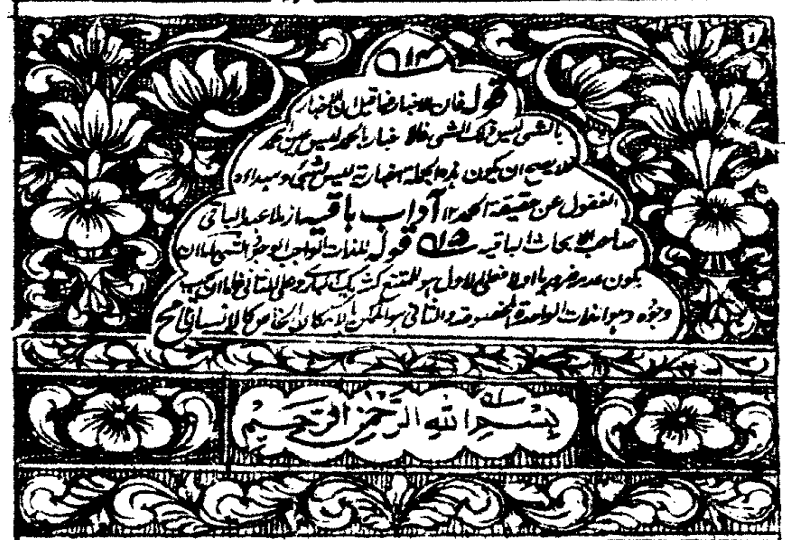 ۱۴
قوله فان الاخبار ما قيل ان الاخبار
بالشئ ليس ذلك الشئ فالاخبار بالحمد ليس عين الحمد
فلا يصح ان يكون هذه الجملة اخبارية ليس بشئ ومبداه
الغفول عن حقيقة الحمد ۱۲ آداب باقيه از ملا عبد الباقي
صاحب الابحاث الباقيه ۱۵ قوله للذات الواجب الوجود الشئ اما ان
يكون عدمه ضروريا او لا فعلى الاول هو الممتنع كشريك الباري وعلى الثاني فاما ان يجب
وجوده وهو الذات الواحدة المخصوصة والثاني هو الممكن بالامكان الخاص كالانسان
بسم الله الرحمن الرحيم